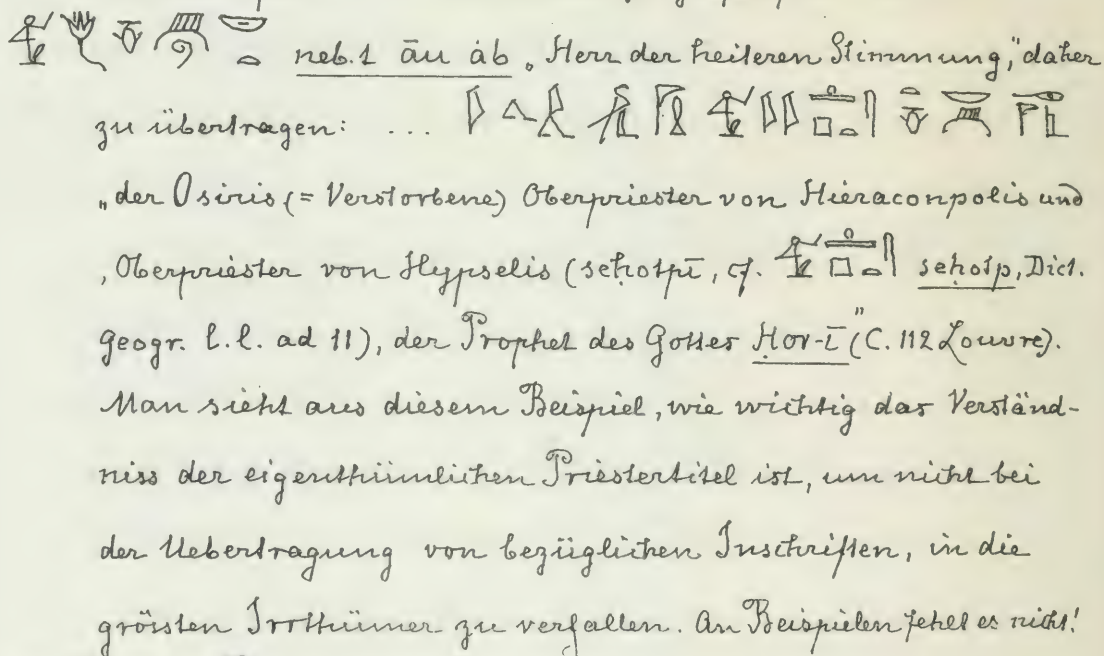 neb.t āu áb „Herr der heiteren Stimmung," daher
zu übertragen: ...
„der Osiris (= Verstorbene) Oberpriester von Hieraconpolis und
„Oberpriester von Hypselis (seḥotpī, cf. seḥotp, Dict.
geogr. l. l. ad 11), der Prophet des Gottes Ḥor-ī" (C. 112 Louvre).
Man sieht aus diesem Beispiel, wie wichtig das Verständ-
niss der eigenthümlichen Priestertitel ist, um nicht bei
der Uebertragung von bezüglichen Inschriften, in die
grössten Irrthümer zu verfallen. An Beispielen fehlt es nicht!